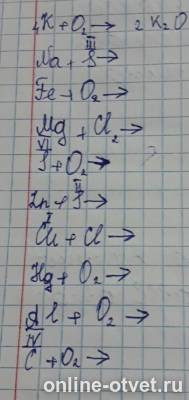 4K + O₂ → 2K₂O
Na + S^III →
Fe + O₂ →
Mg + Cl₂ →
S^VI + O₂ →
Zn + S^II →
Cu^I + Cl →
Hg + O₂ →
Al + O₂ →
C^IV + O₂ →
online-otvet.ru